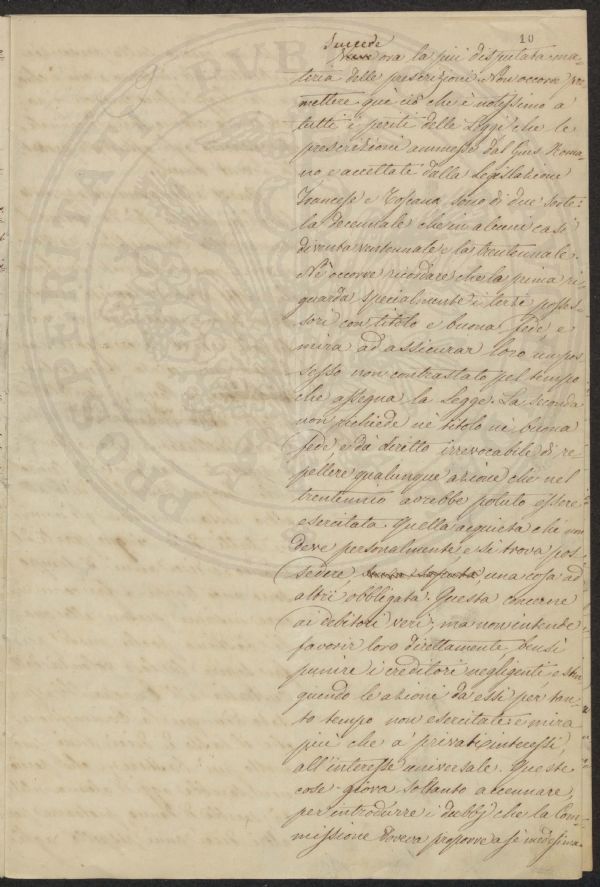 10
Succede
ora la più disputata ma-
teria delle prescrizioni. Non occorre pre
mettere quì ciò che è notissimo a
tutti i periti delle Leggi che le
prescrizioni ammesse dal Gius Roma-
no e accettate dalla Legislazione
Francese e Toscana, sono di due sorte:
la decennale che in alcuni casi
diventa ventennale e la trentennale.
Nè occorre ricordare che la prima ri-
guarda specialmente i terzi posses-
sori con titolo e buona fede e
mira ad assicurar loro un pos
sesso non contrastato pel tempo
che assegna la Legge. La seconda
non richiede nè titolo nè buona
fede, e dà diritto irrevocabile di re
pellere qualunque azione che nel
trentennio avrebbe potuto essere
esercitata. Quella acquieta chi non
deve personalmente e si trova pos
sedere, senza saputa una cosa ad
altri obbligata. Questa concerne
ai debitori veri; ma non intende
favorir loro direttamente, bensì
punire i creditori negligenti estin
guendo le azioni da essi per tan-
to tempo non esercitate e mira
più che a' privati interessi,
all'interesse universale. Queste
cose giova soltanto accennare,
per introdurre i dubbj che la Com-
missione doveva proporre a se medesima.
PROSPERITATI PVBL